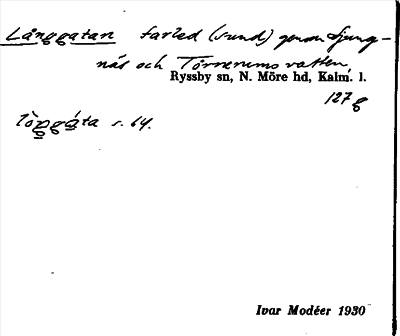 Långgatan farled (sund) genom Ljung-
näs och Törrerums vatten,
Ryssby sn, N. Möre hd, Kalm. l.
127 g
lòŋgáta s. 64.
Ivar Modéer 1930